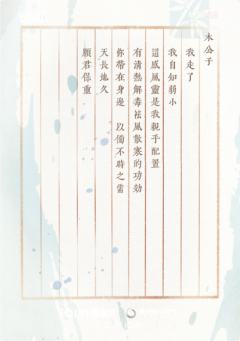 木公子
我走了
我自知弱小
這感風靈是我親手配置
有清熱解毒祛風散寒的功効
你帶在身邊 以備不時之需
天長地久
願君保重